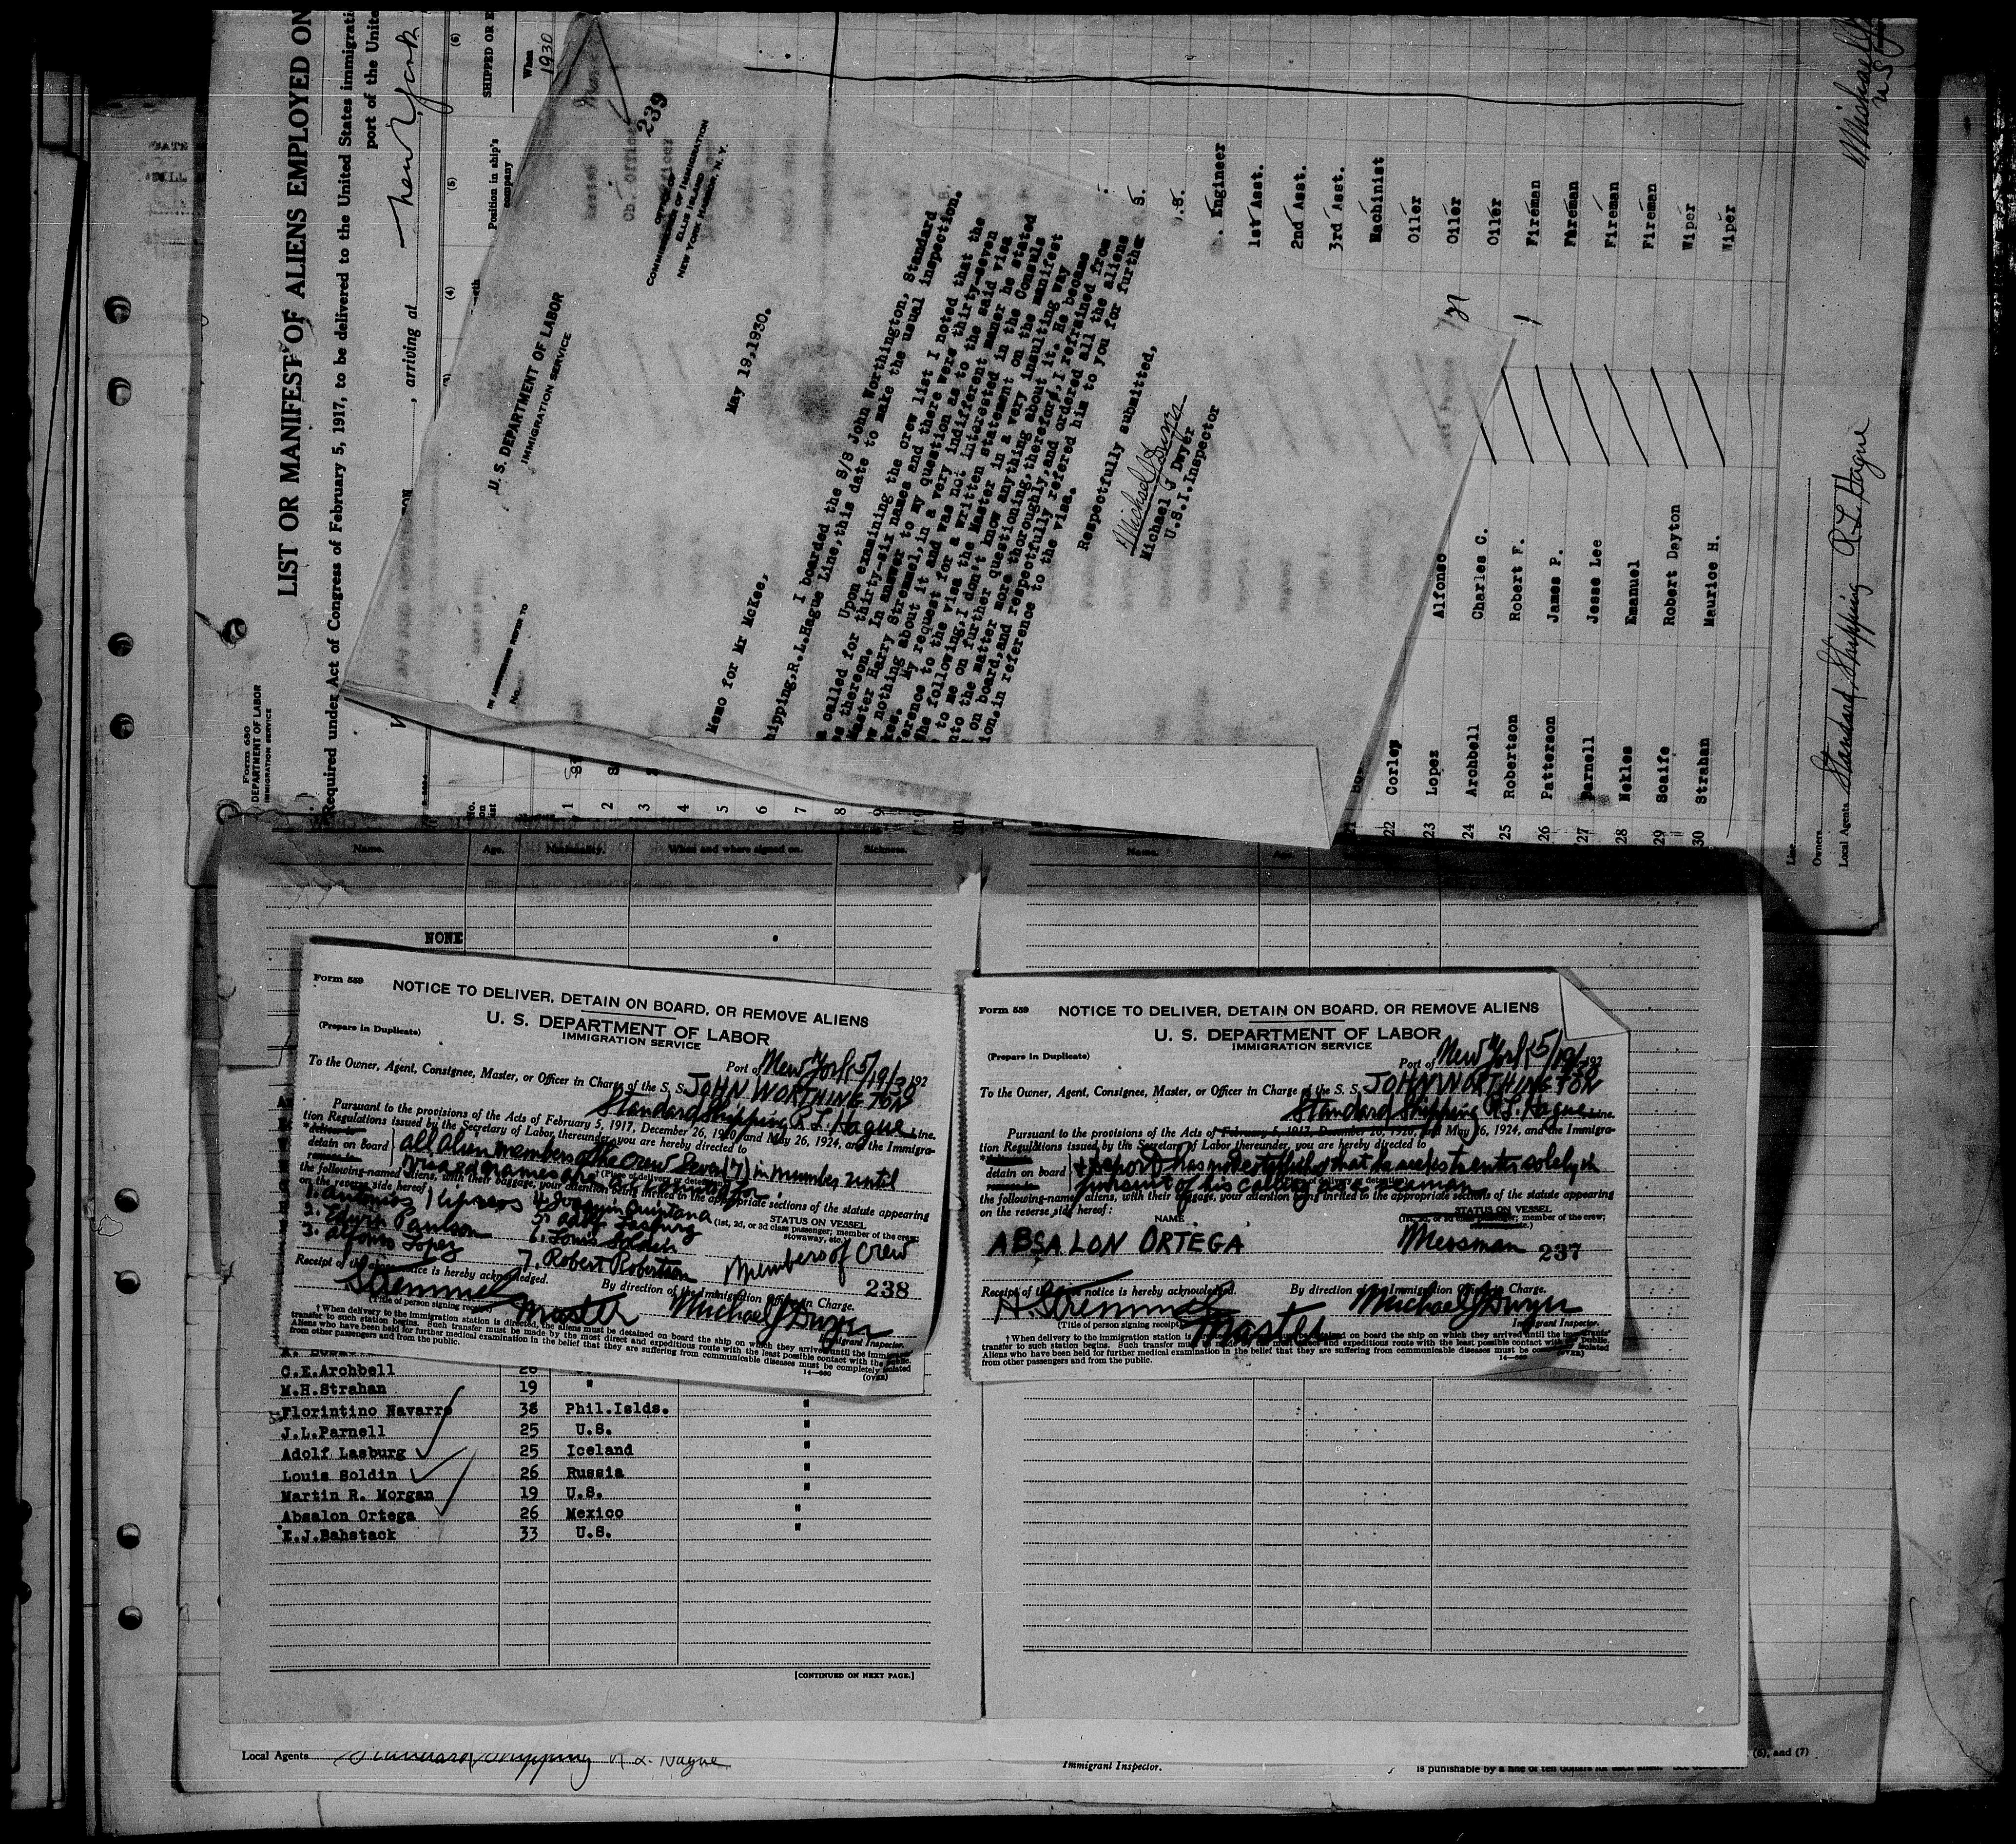 Form 680
DEPARTMENT OF LABOR
IMMIGRATION SERVICE
LIST OR MANIFEST OF ALIENS EMPLOYED ON
Required under Act of Congress of February 5, 1917, to be delivered to the United States immigrati
port of the Unite
, arriving at New York
(4)
(5)
(6)
Position in ship's
company
SHIPPED OR E
When
1930
No.
on
list
1
2
3
4
5
6
7
8
9
239
U. S. DEPARTMENT OF LABOR
IMMIGRATION SERVICE
OFFICE OF
COMMISSIONER OF IMMIGRATION
ELLIS ISLAND
NEW YORK HARBOR, N. Y.
IN ANSWERING REFER TO
No.
May 19,1930.
Memo for Mr McKee,
I boarded the S/S John Worthington, Standard
hipping,R.L.Hague Line,this date to make the usual inspection.
Upon examining the crew list I noted that the
called for thirty-six names and there were thirty-seven
thereon. In answer to my question as to the said visa
Master Harry Stremmel,in a very indifferent maner he stated
nothing about it and was not interested in the Consuls
kes. My request for a written statement on the manifest
erence to the visa the Master in a very insulting way
the following,I don't know anything about it. He became
to me on further questioning,therefore,I refrained from
nto the matter more thoroughly,and ordered all the aliens
on board,and respectfully refered him to you for further
ion.in reference to the visa.
Respectfully submitted,
Michael J Dwyer
Michael J Dwyer
U.S.I.Inspector
. Engineer
1st Asst.
2nd Asst.
3rd Asst.
Machinist
Oiler
Oiler
Oiler
Fireman
Fireman
Fireman
Fireman
Wiper
Wiper
21
22 Corley
23 Lopez Alfonso
24 Archbell Charles C.
25 Robertson Robert F.
26 Patterson James P.
27 Parnell Jesse Lee
28 Nekles Emanuel
29 Scaife Robert Dayton
30 Strahan Maurice H.
Line
Owners
Local Agents Standard Shipping R L Hague
Name. Age. Nationality. When and where signed on. Sickness.
Name.
NONE
Form 559
NOTICE TO DELIVER, DETAIN ON BOARD, OR REMOVE ALIENS
U. S. DEPARTMENT OF LABOR
IMMIGRATION SERVICE
(Prepare in Duplicate)
Port of New York 5/19/30 192
To the Owner, Agent, Consignee, Master, or Officer in Charge of the S. S. JOHN WORTHINGTON
Standard Shipping R.L. Hague Line.
Pursuant to the provisions of the Acts of February 5, 1917, December 26, 1920, and May 26, 1924, and the Immigra-
tion Regulations issued by the Secretary of Labor thereunder, you are hereby directed to
detain on board all alien members of the crew Seven (7) in number until
visaed names are accounted for
the following-named aliens, with their baggage, your attention being invited to the appropriate sections of the statute appearing
on the reverse side hereof:
STATUS ON VESSEL
(1st, 2d, or 3d class passenger; member of the crew;
stowaway, etc.)
1. Antonios
2. Edwin Paulson
3. Alfonso Lopez
4. Joaquin Quintana
5. Adolf Lasburg
6. Louis Soldin
7. Robert Robertson
Members of Crew
238
Receipt of the above notice is hereby acknowledged.
By direction of the Immigration Officer in Charge.
Stremmel
Master
Michael J Dwyer
(Title of person signing receipt)
Immigrant Inspector.
† When delivery to the immigration station is directed, the aliens must be detained on board the ship on which they arrived until the immigrants'
transfer to such station begins. Such transfer must be made by the most direct and expeditious route with the least possible contact with the public.
Aliens who have been held for further medical examination in the belief that they are suffering from communicable diseases must be completely isolated
from other passengers and from the public.
14—660
(OVER)
Form 559
NOTICE TO DELIVER, DETAIN ON BOARD, OR REMOVE ALIENS
U. S. DEPARTMENT OF LABOR
IMMIGRATION SERVICE
(Prepare in Duplicate)
Port of New York 5/19/30 192
To the Owner, Agent, Consignee, Master, or Officer in Charge of the S. S. JOHN WORTHINGTON
Standard Shipping R.L. Hague Line.
Pursuant to the provisions of the Acts of February 5, 1917, December 26, 1920, and May 26, 1924, and the Immigra-
tion Regulations issued by the Secretary of Labor thereunder, you are hereby directed to
detain on board & deport has not established that he seeks to enter solely in
pursuit of his calling as a seaman
the following-named aliens, with their baggage, your attention being invited to the appropriate sections of the statute appearing
on the reverse side hereof:
NAME
STATUS ON VESSEL
(1st, 2d, or 3d class passenger; member of the crew;
stowaway, etc.)
ABSALON ORTEGA
Messman
237
Receipt of the above notice is hereby acknowledged.
By direction of the Immigration Officer in Charge.
H. Stremmel
Master
Michael J Dwyer
(Title of person signing receipt)
Immigrant Inspector.
† When delivery to the immigration station is detained on board the ship on which they arrived until the immigrants'
transfer to such station begins. Such transfer must be made and expeditious route with the least possible contact with the public.
Aliens who have been held for further medical examination in the belief that they are suffering from communicable diseases must be completely isolated
from other passengers and from the public.
14—660
(OVER)
C.E.Archbell 20
M.H.Strahan 19 "
Florintino Navarro 38 Phil.Islds. "
J.L.Parnell 25 U.S. "
Adolf Lasburg 25 Iceland "
Louis Soldin 26 Russia "
Martin R. Morgan 19 U.S. "
Absalon Ortega 26 Mexico "
E.J.Bahstack 33 U.S. "
[CONTINUED ON NEXT PAGE.]
Local Agents Standard Shipping R L. Hague
Immigrant Inspector.
(6), and (7)
is punishable by a fine of ten dollars for each alien.